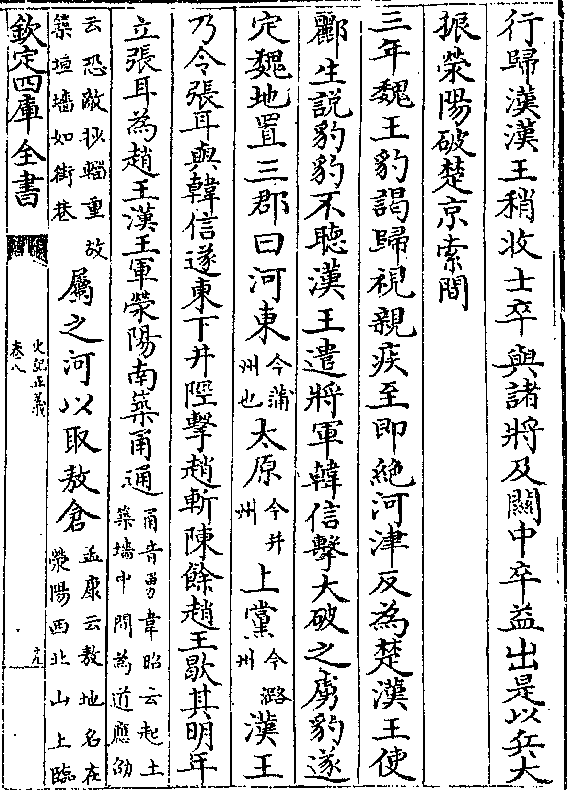 行歸漢漢王稍收士卒與諸將及關中卒益出是以兵大
振滎陽破楚京索間
三年魏王豹謁歸視親疾至即絶河津反為楚漢王使
酈生説豹豹不聽漢王遣將軍韓信擊大破之虜豹遂
定魏地置三郡曰河東今蒲州也太原今并州上黨今潞州漢王
乃令張耳與韓信遂東下井陘擊趙斬陳餘趙王歇其明年
立張耳為趙王漢王軍滎陽南築甬道甬音勇韋昭云起土築墻中間為道應劭
云恐敵抄輜重故築垣墻如街巷屬之河以取敖倉孟康云敖地名在滎陽西北山上臨
欽定四庫全書
史記正義
卷八
十九